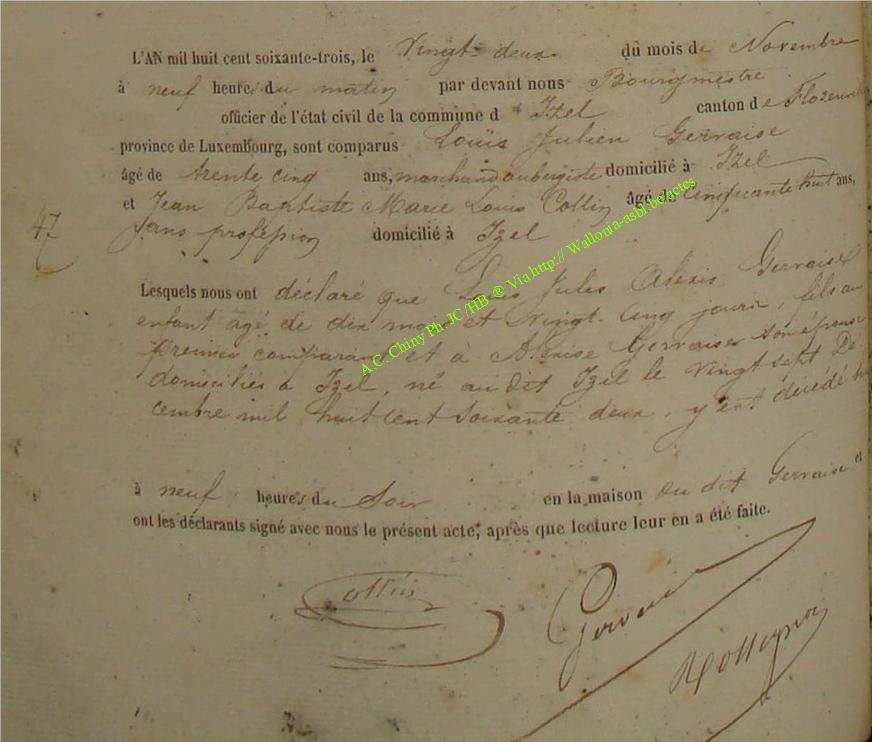 L'AN mil huit cent soixante-trois, le Vingt deux du mois de Novembre
à neuf heures du matin par devant nous Bourgmestre
officier de l'état civil de la commune d' Izel canton de Florenville
province de Luxembourg, sont comparus Louis Julien Gervaise
âgé de trente cinq ans, marchand aubergiste domicilié à Izel
et Jean Baptiste Marie Louis Collin âgé de cinquante huit ans,
47 sans profession domicilié à Izel
Lesquels nous ont déclaré que Louis Jules Alexis Gervaise
enfant âgé de dix mois et vingt cinq jours, fils au
premier comparant et à Gervaise son épouse
domiciliés à Izel, né au dit Izel le vingt sept Dé
cembre mil huit cent soixante deux, y est décédé
à neuf heures du Soir en la maison du dit Gervaise et
ont les déclarants signé avec nous le présent acte, après que lecture leur en a été faite.
Collin
Gervaise
A.C. Chiny Ph. JC /HB ® Via http:// Wallonia-asbl be/actes